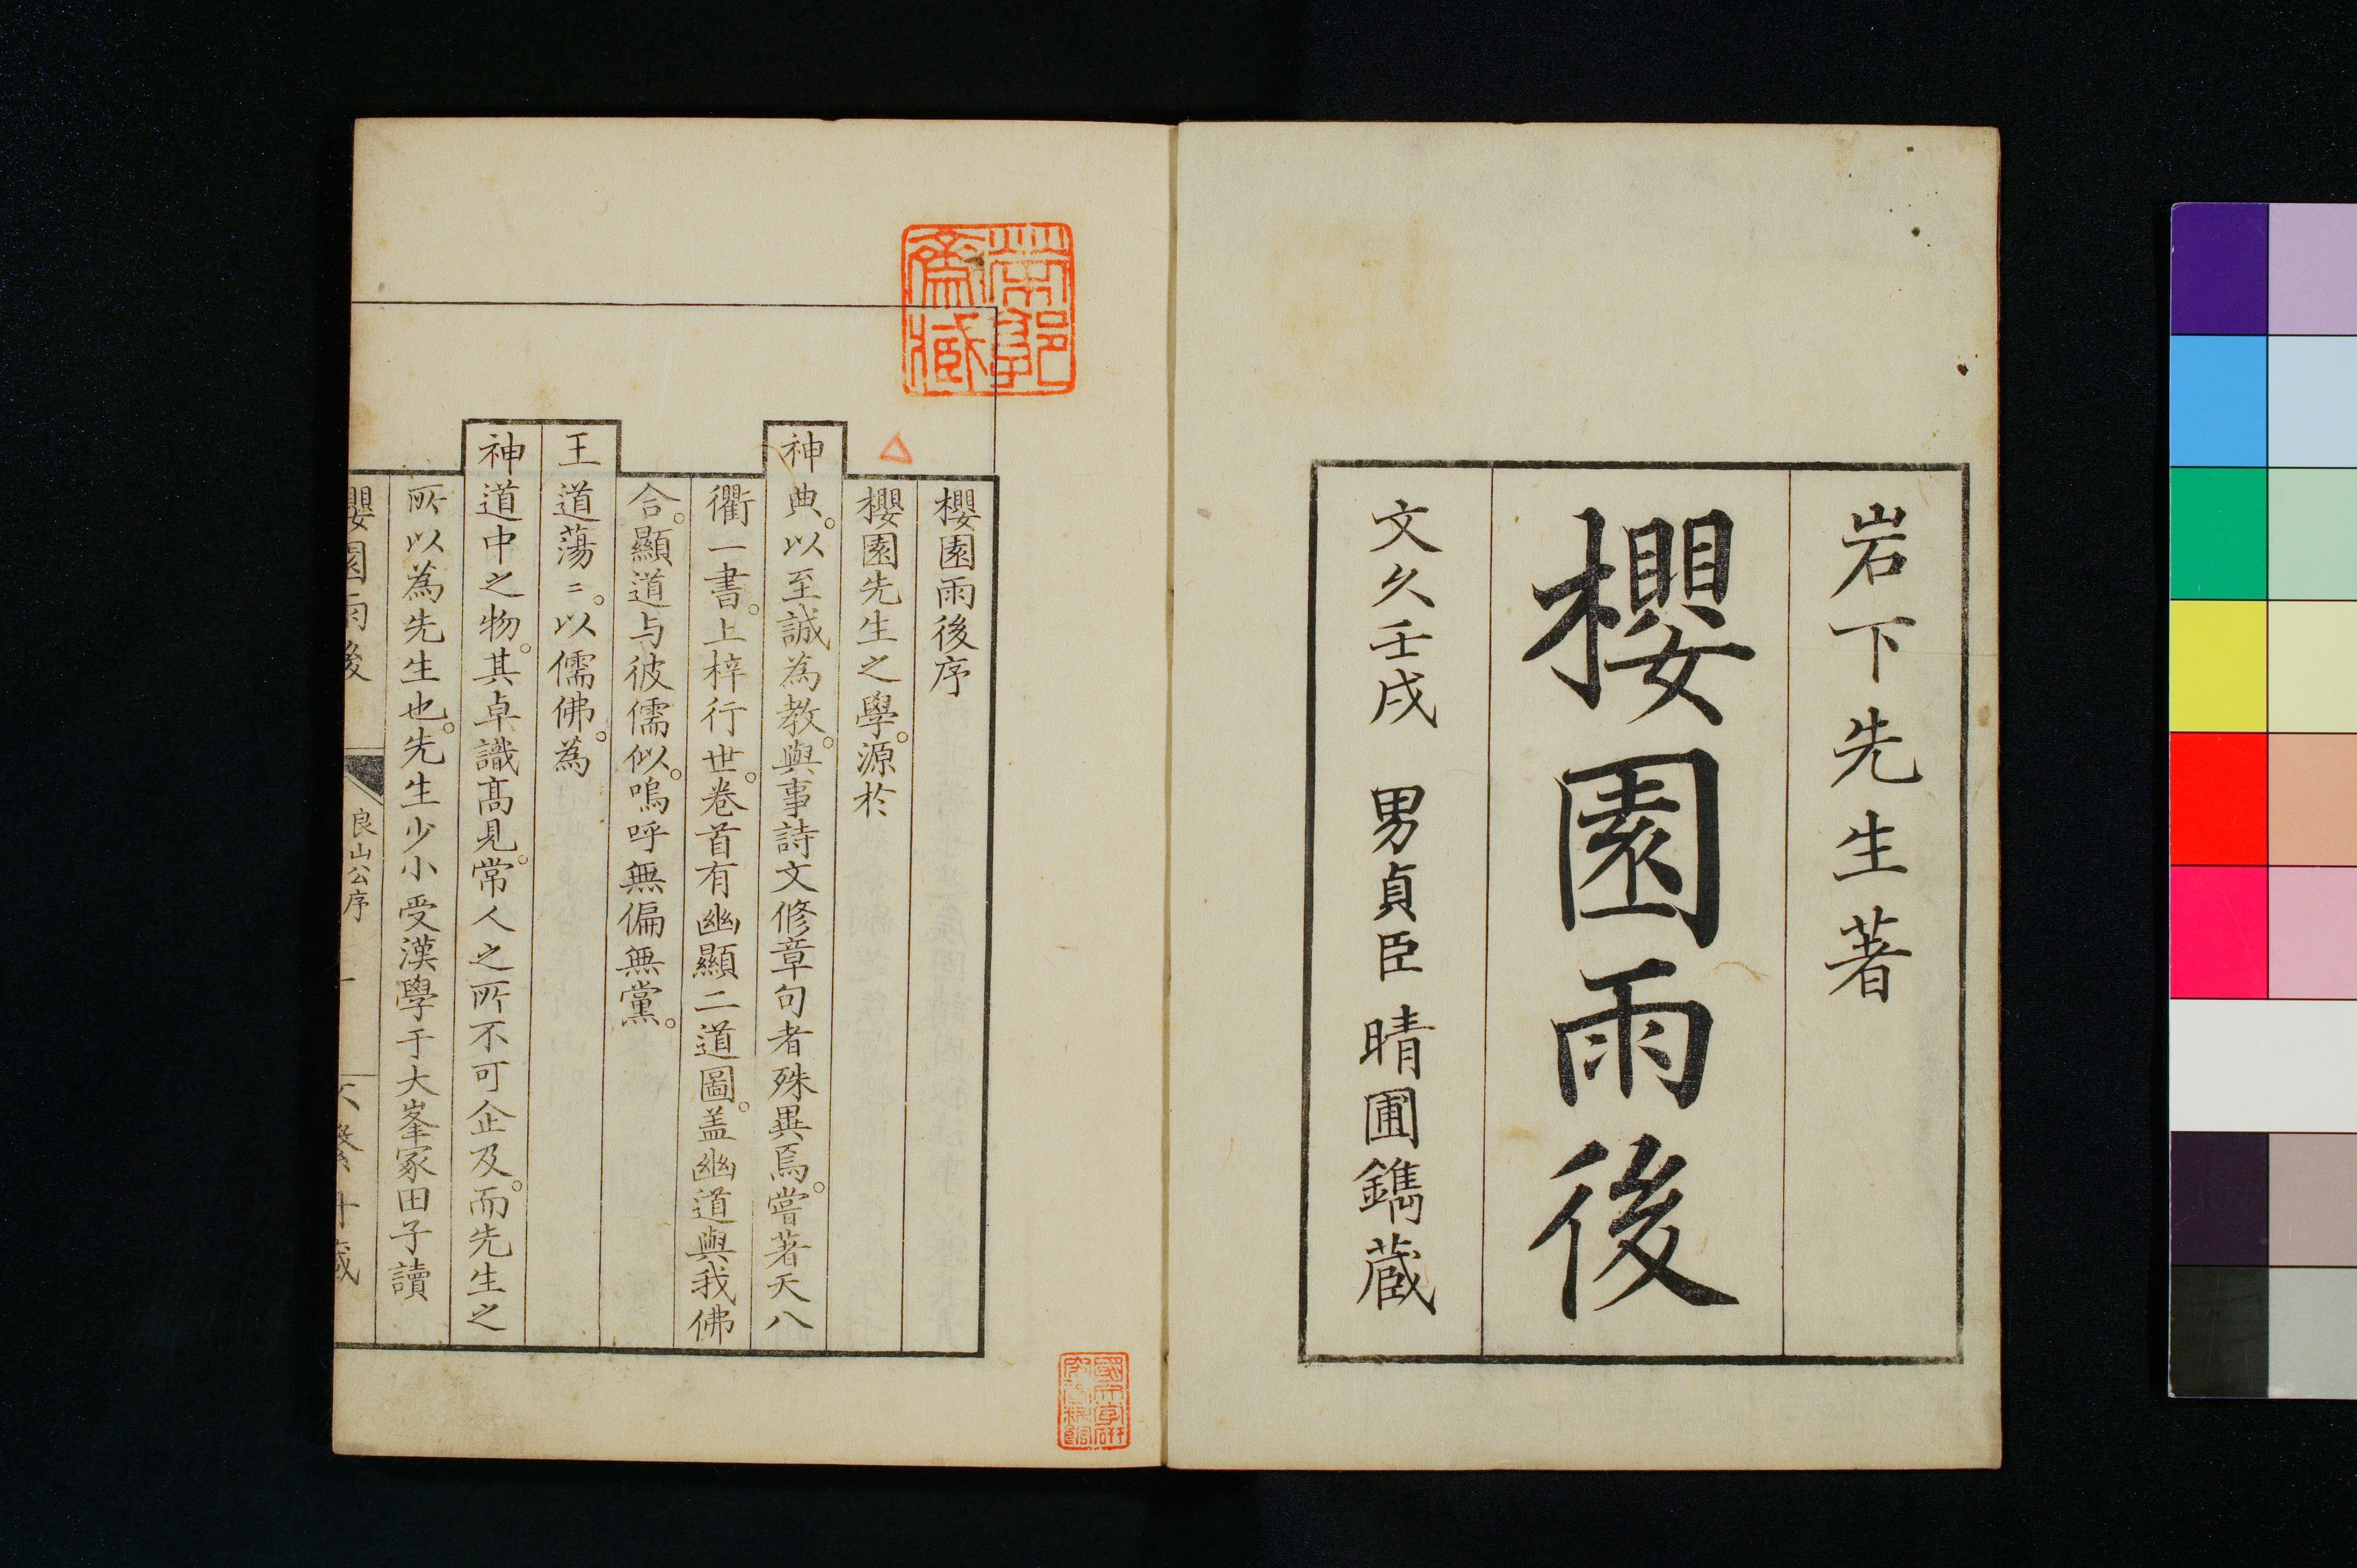 岩下先生著
櫻園雨後
文久壬戌　男貞臣　晴圃鐫藏
櫻園雨後序
櫻園先生之學。源於
神典。以至誠為教。與事詩文修章句者殊異焉。嘗著天八
衢一書。上梓行世。卷首有幽顯二道圖。盖幽道與我佛
合。顯道与彼儒似。嗚呼無偏無黨。
王道蕩〻。以儒佛。為
神道中之物。其卓識髙見。常人之所不可企及。而先生之
所以為先生也。先生少小受漢學于大峯冢田子讀
櫻園雨後
良山公序
一